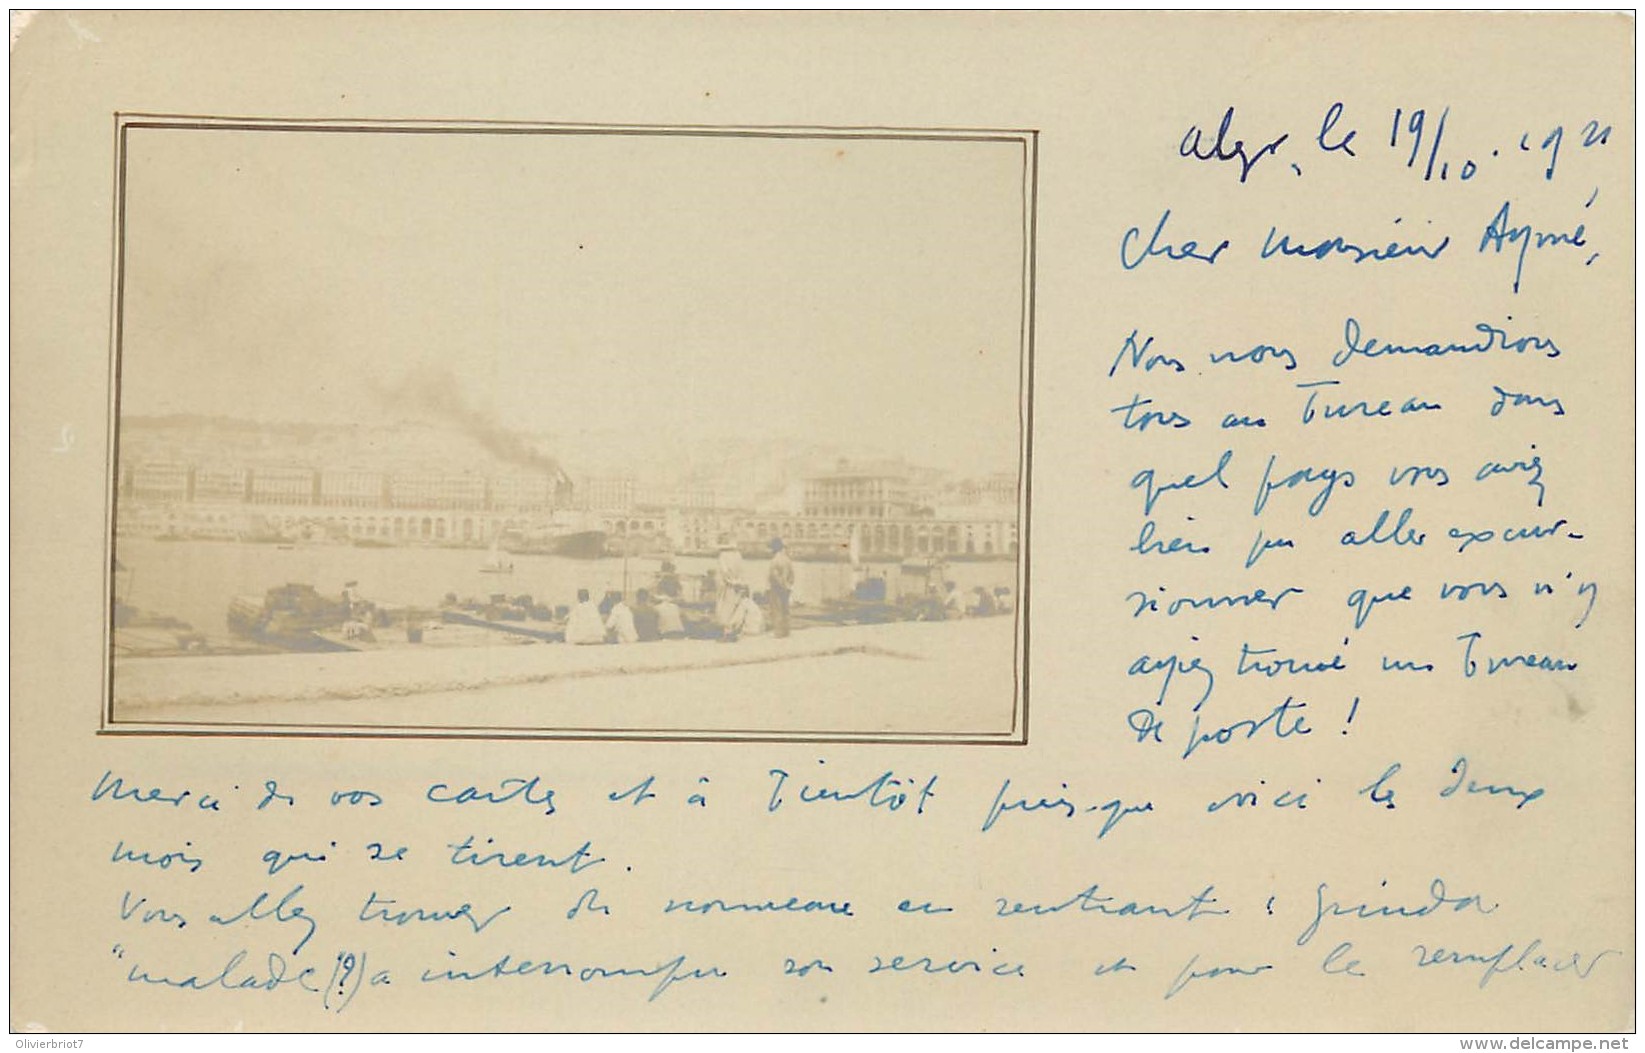 Alger, le 19/10. 1921
Cher Monsieur Aymé,
Nous nous demandions
tous au Bureau dans
quel pays vous aviez
bien pu aller excur-
sionner que vous n'y
ayiez trouvé un Bureau
de poste !
Merci de vos cartes et à Bientôt puis-que voici les deux
mois qui se tirent.
Vous allez trouver du nouveau en rentrant : Grinda
"malade (?) a interrompu son service et pour le remplacer
Olivierbriot7
www.delcampe.net